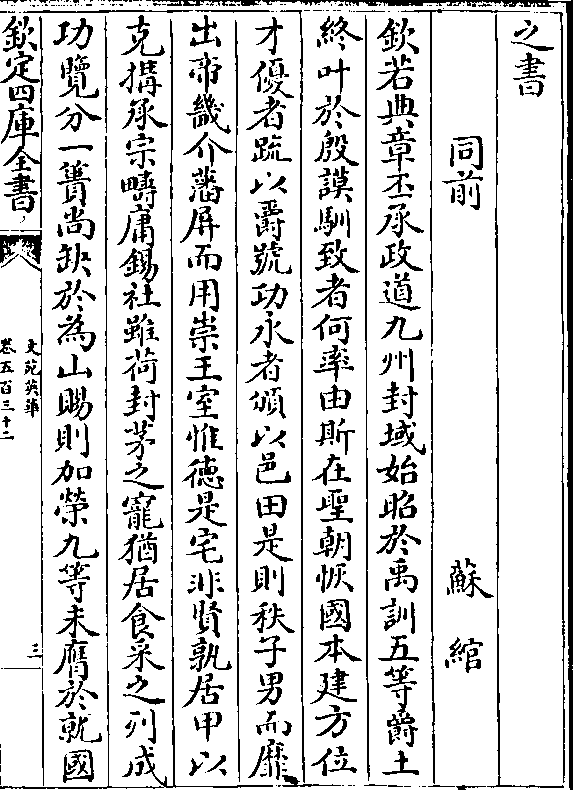 之書
同前 蘇綰
欽若典章丕承政道九州封域始昭於禹訓五等爵土
終叶於殷謨馴致者何率由斯在聖朝恢國本建方位
才優者疏以爵號功永者頒以邑田是則秩子男而靡
出帝畿介藩屏而用崇王室惟德是宅非賢孰居甲以
克搆承宗疇庸錫社雖荷封茅之寵猶居食采之列成
功覽分一簣尚缺於為山賜則加榮九等未膺於就國
欽定四庫全書
文苑英華
卷五百三十二
三